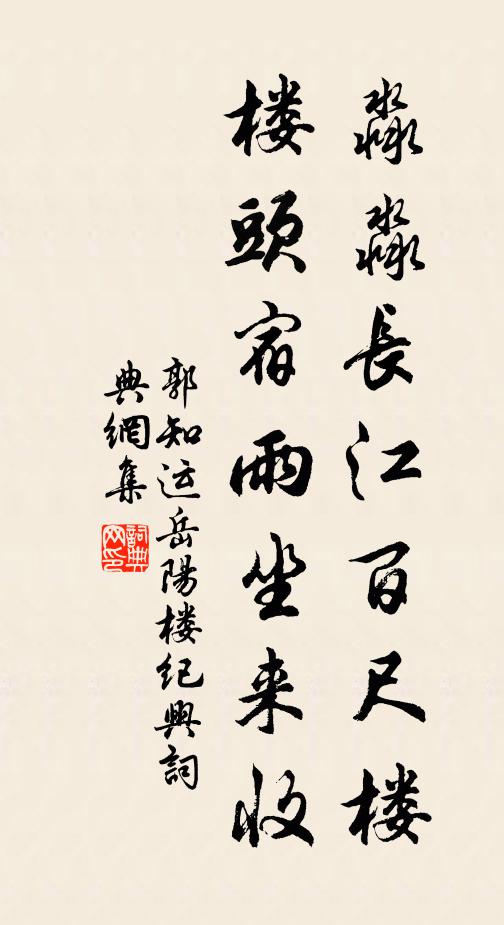 淼淼長江百尺楼
楼頭宿雨坐来收
郭知运岳陽楼纪興詞
典網集
詞典网印